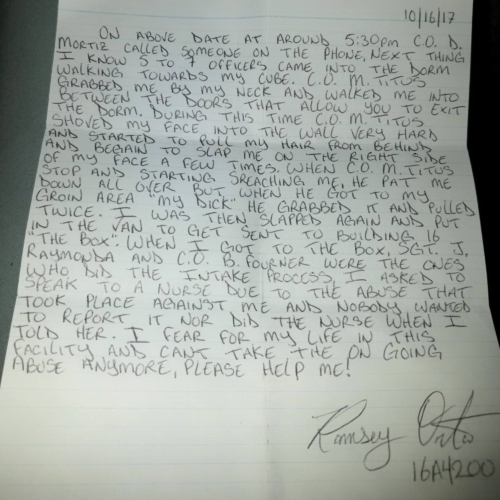 10/16/17
ON ABOVE DATE AT AROUND 5:30pm C.O. D.
MORTIZ CALLED SOMEONE ON THE PHONE, NEXT THING
I KNOW 5 TO 7 OFFICERS CAME INTO THE DORM
WALKING TOWARDS MY CUBE. C.O. M. TITUS
GRABBED ME BY MY NECK AND WALKED ME INTO
BETWEEN THE DOORS THAT ALLOW YOU TO EXIT
THE DORM. DURING THIS TIME C.O. M. TITUS
SHOVED MY FACE INTO THE WALL VERY HARD
AND STARTED TO PULL MY HAIR FROM BEHIND
AND BEGAIN TO SLAP ME ON THE RIGHT SIDE
OF MY FACE A FEW TIMES. WHEN C.O. M. TITUS
STOP AND STARTING SREACHING ME, HE PAT ME
DOWN ALL OVER BUT WHEN HE GOT TO MY
GROIN AREA "MY DICK" HE GRABBED IT AND PULLED
TWICE. I WAS THEN SLAPPED AGAIN AND PUT
IN THE VAN TO GET SENT TO BUILDING 16
"THE BOX". WHEN I GOT TO THE BOX, SGT. J.
RAYMONDA AND C.O. B. FOURNER WERE THE ONES
WHO DID THE INTAKE PROCESS, I ASKED TO
SPEAK TO A NURSE DUE TO THE ABUSE THAT
TOOK PLACE AGAINST ME AND NOBODY WANTED
TO REPORT IT NOR DID THE NURSE WHEN I
TOLD HER. I FEAR FOR MY LIFE IN THIS
FACILITY AND CANT TAKE THE ON GOING
ABUSE ANYMORE, PLEASE HELP ME!
Ramsey Orta
16A4200